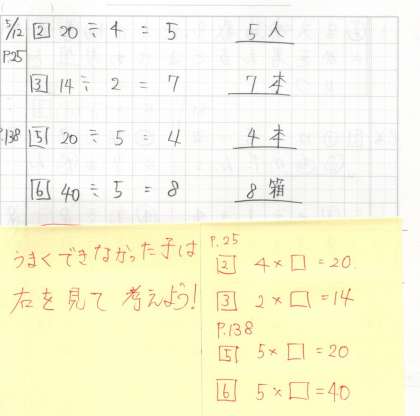 5/12 [2] 20 ÷ 4 = 5 5人
P.25
[3] 14 ÷ 2 = 7 7本
P.138 [5] 20 ÷ 5 = 4 4本
[6] 40 ÷ 5 = 8 8箱
うまくできなかった子は
右を見て 考えよう!
P.25
[2] 4×□=20
[3] 2×□=14
P.138
[5] 5×□=20
[6] 5×□=40